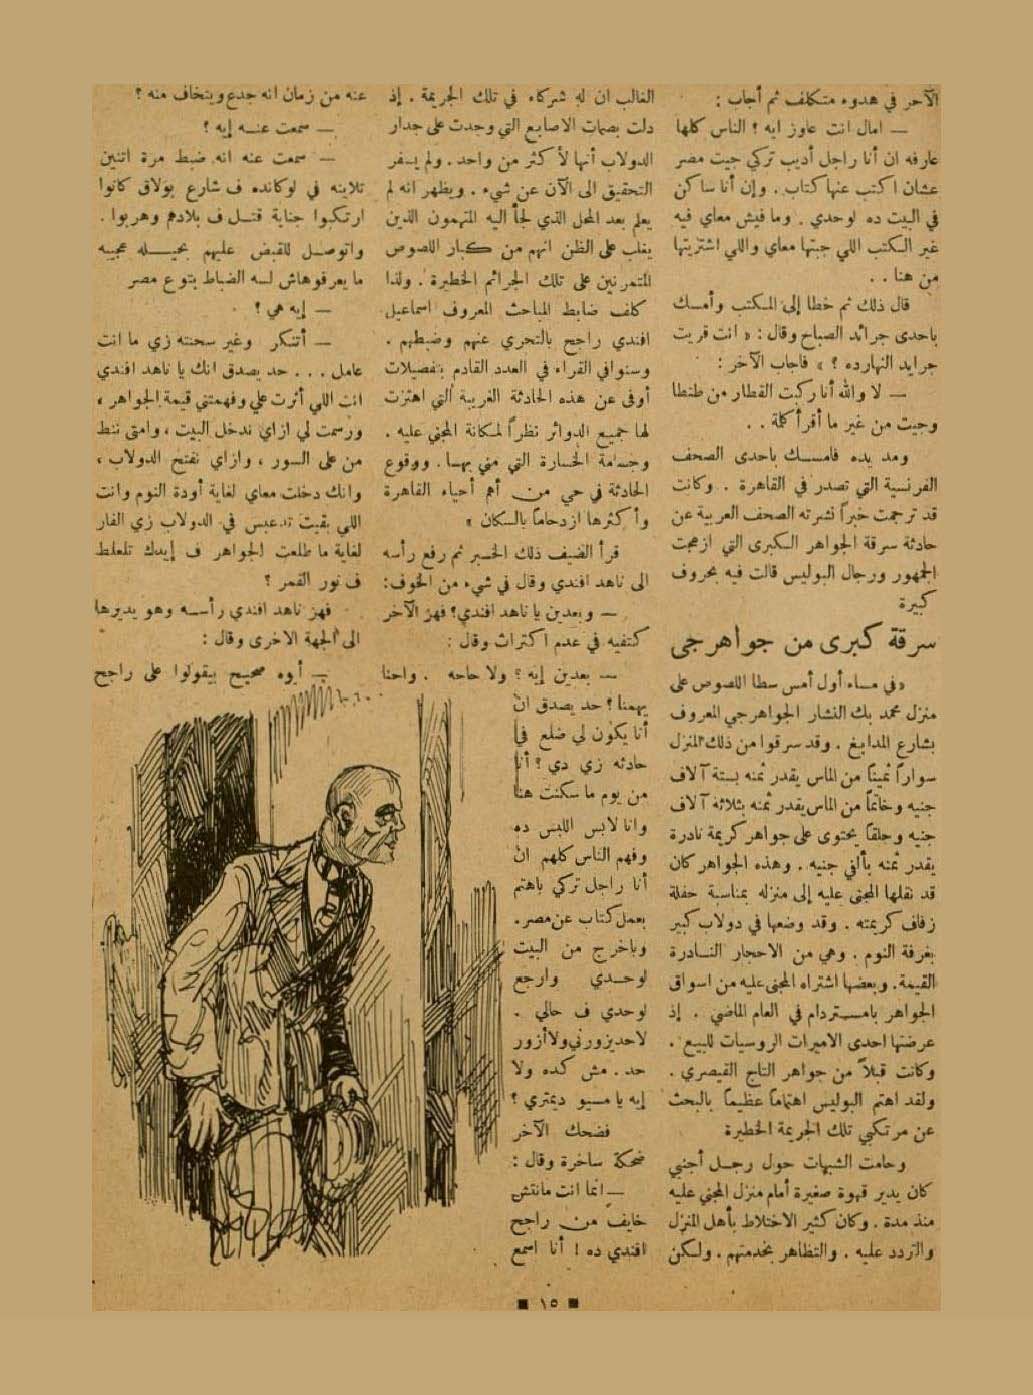 الآخر في هدوء متكلف ثم أجاب :
— امال انت عاوز ايه ؟ الناس كلها
عارفه ان أنا راجل أديب تركي جيت مصر
عشان اكتب عنها كتاب . وإن أنا ساكن
في البيت ده لوحدي . وما فيش معاي فيه
غير الكتب اللي جبتها معاي واللي اشتريتها
من هنا . .
قال ذلك ثم خطا إلى المكتب وأمسك
باحدى جرائد الصباح وقال : « انت قريت
جرايد النهارده ؟ » فاجاب الآخر :
— لا والله أنا ركبت القطار من طنطا
وجيت من غير ما أقرأ كلمة . .
ومد يده فامسك باحدى الصحف
الفرنسية التي تصدر في القاهرة . وكانت
قد ترجمت خبراً نشرته الصحف العربية عن
حادثة سرقة الجواهر الكبرى التي ازعجت
الجمهور ورجال البوليس قالت فيه بحروف
كبيرة
سرقة كبرى من جواهرجى
« في مساء أول أمس سطا اللصوص على
منزل محمد بك النشار الجواهرجي المعروف
بشارع المدابغ . وقد سرقوا من ذلك المنزل
سواراً ثميناً من الماس يقدر ثمنه بستة آلاف
جنيه وخاتماً من الماس يقدر ثمنه بثلاثة آلاف
جنيه وحلقاً يحتوى على جواهر كريمة نادرة
يقدر ثمنه بألفي جنيه . وهذه الجواهر كان
قد نقلها المجنى عليه إلى منزله بمناسبة حفلة
زفاف كريمته . وقد وضعها في دولاب كبير
بغرفة النوم . وهي من الاحجار النادرة
القيمة . وبعضها اشتراه المجنى عليه من اسواق
الجواهر بامستردام في العام الماضي . إذ
عرضتها احدى الاميرات الروسيات للبيع .
وكانت قبلاً من جواهر التاج القيصري .
ولقد اهتم البوليس اهتماماً عظيماً بالبحث
عن مرتكبي تلك الجريمة الخطيرة
وحامت الشبهات حول رجل أجنبي
كان يدير قهوة صغيرة أمام منزل المجنى عليه
منذ مدة . وكان كثير الاختلاط بأهل المنزل
والتردد عليه . والتظاهر بخدمتهم . ولكن
الغالب ان له شركاء في تلك الجريمة . إذ
دلت بصمات الاصابع التي وجدت على جدار
الدولاب أنها لأكثر من واحد . ولم يسفر
التحقيق الى الآن عن شيء . ويظهر انه لم
يعلم بعد المحل الذي لجأ اليه المتهمون الذين
يغلب على الظن انهم من كبار اللصوص
المتمرنين على تلك الجرائم الخطيرة . ولذا
كلف ضابط المباحث المعروف اسماعيل
افندي راجح بالتحري عنهم وضبطهم .
وسنوافي القراء في العدد القادم بتفصيلات
أوفى عن هذه الحادثة الغريبة التي اهتزت
لها جميع الدوائر نظراً لمكانة المجني عليه .
وجسامة الخسارة التي مني بها . ووقوع
الحادثة في حي من أهم أحياء القاهرة
وأكثرها ازدحاماً بالسكان »
قرأ الضيف ذلك الخبر ثم رفع رأسه
الى ناهد افندي وقال في شيء من الخوف :
— وبعدين يا ناهد افندي ؟ فهز الآخر
كتفيه في عدم اكتراث وقال :
— بعدين إيه ؟ ولا حاجه . واحنا
يهمنا ؟ حد يصدق ان
أنا يكون لي ضلع في
حادثه زي دي ؟ أنا
من يوم ما سكنت هنا
وانا لابس اللبس ده
وفهم الناس كلهم ان
أنا راجل تركي باهتم
بعمل كتاب عن مصر .
وباخرج من البيت
لوحدي وارجع
لوحدي ف حالي .
لا حد يزورني ولا أزور
حد . مش كده ولا
إيه يا مسيو ديمتري ؟
فضحك الآخر
ضحكة ساخرة وقال :
— انما انت مانتش
خايف من راجح
افندي ده ! أنا اسمع
عنه من زمان انه جدع وينخاف منه ؟
— سمعت عنه إيه ؟
— سمعت عنه انه ضبط مرة اتنين
تلاينه في لوكانده ف شارع بولاق كانوا
ارتكبوا جناية قتل ف بلادهم وهربوا .
واتوصل للقبض عليهم بحيله عجيبه
ما يعرفوهاش لسه الضباط بتوع مصر
— إيه هي ؟
— أتنكر وغير سحنته زي ما انت
عامل . . . حد يصدق انك يا ناهد افندي
انت اللي أثرت علي وفهمتني قيمة الجواهر ،
ورسمت لي ازاي ندخل البيت ، وامتى ننط
من على السور ، وازاي نفتح الدولاب ،
وانك دخلت معاي لغاية أودة النوم وانت
اللي بقيت تدعبس في الدولاب زي الفار
لغاية ما طلعت الجواهر ف إيدك تلعلط
ف نور القمر ؟
فهز ناهد افندي رأسه وهو يديرها
الى الجهة الاخرى وقال :
— أيوه صحيح بيقولوا على راجح
■ ١٥ ■